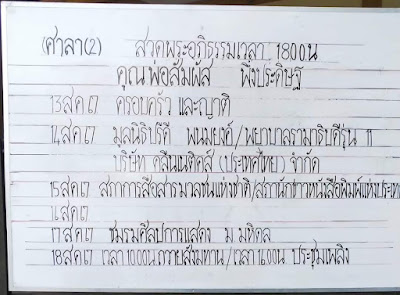 (ศาลา(2) สวดพระอภิธรรมเวลา 1800น
คุณพ่อสัมผัส พึ่งประดิษฐ
13สค67 ครอบครัว และญาติ
14สค67 มูลนิธิปรีดี พนมยงค์/พยาบาลรามาธิบดีรุ่น 11
บริษัท คลีนเนติคส์ (ประเทศไทย) จำกัด
15สค67 สภาการสื่อสารมวลชนแห่งชาติ/สภานักข่าวหนังสือพิมพ์แห่งประเทศ
16สค67
17สค67 ชมรมศิลปการแสดง ม มหิดล
18สค67 เวลา 10.00น.ถวายสังฆทาน/เวลา 16.00น ประชุมเพลิง